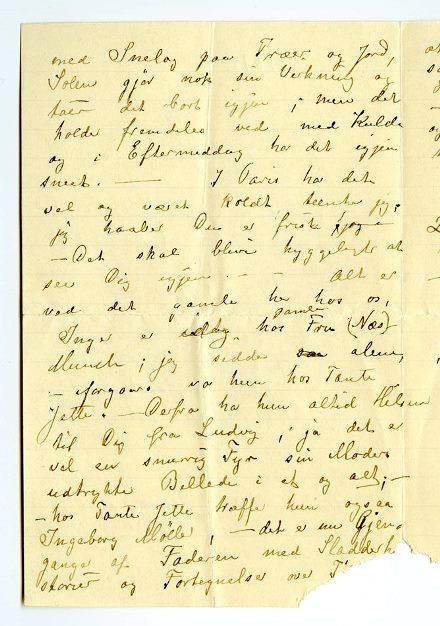 med Snelag paa Træer og Jord,
Solen gjør nok sin Virkning og
taer det bort igjen; men det
holder fremdeles ved med Kulde
og i Eftermiddag har det igjen
sneet. — I Paris har det
vel og været koldt tænke jeg,
jeg haaber Du er frisk
— Det skal blive hyggeligt at
see Dig igjen. — — Alt er
ved det gamle her hos os,
Inger er idag hos gamle Fru (Næs)
Munch; jeg sidder alene,
— forgaars va hun hos Tante
Jette. — Derfra ha hun altid Hilsen
til Dig fra Ludvig; ja det er
vel en snurrig Fyr sin Moders
udtrykte Billede i et og alt; —
— hos Tante Jette træffe hun ogsaa
Ingeborg Møller, — det er nu Gjen-
ganger af Faderen med Sladder
storier og Fortegnelser over